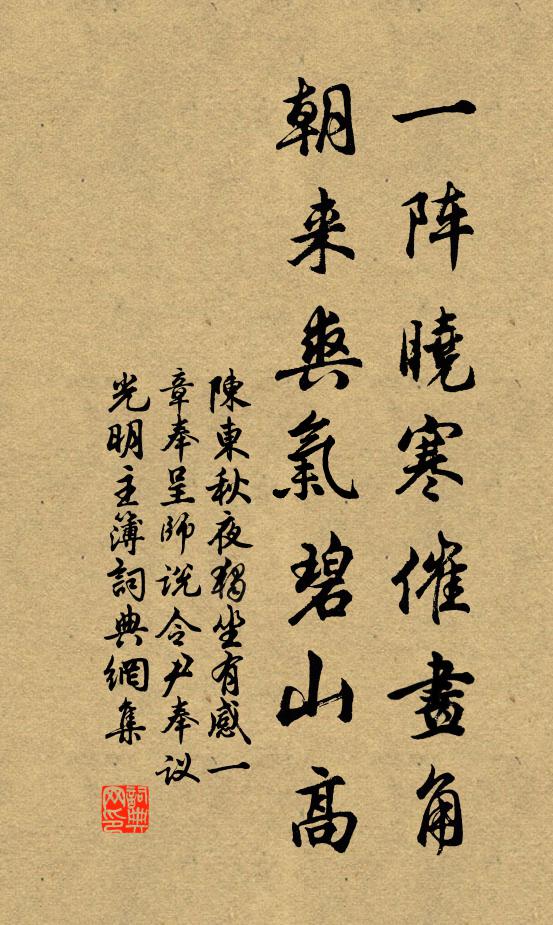 一阵曉寒催畫角
朝来爽氣碧山高
陳東秋夜獨坐有感一
章奉呈師说令尹奉议
光明主簿詞典網集
詞典网印